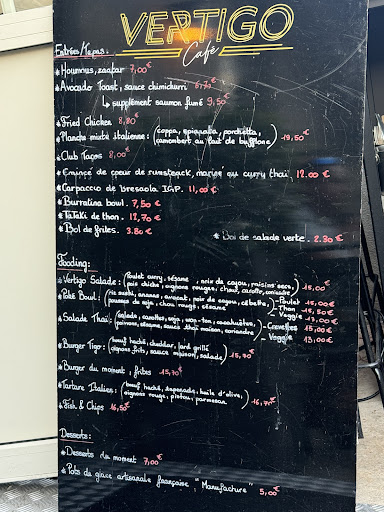 VERTIGO
Café
Entrées/Tapas:
* Houmous, zaatar 7,00€
* Avocado Toast, sauce chimichurri
↳ supplément saumon fumé 9,50€
* Fried Chicken 8,80€
* Planche mixte italienne: (coppa, spianata, porchetta,
camembert au lait de bufflone) 19,50€
* Club Tacos 8,00€
* Emincé de coeur de rumsteack, mariné au curry thaï, 12.00€
* Carpaccio de Bresaola IGP. 11,00€
* Burratina bowl. 7,50€
* TaTaKi de thon. 12,70€
* Bol de frites. 3.80€
* Bol de salade verte. 2.30€
Fooding:
* Vertigo Salade: (Poulet curry, sésame, noix de cajou, raisins secs,
pois chiche, oignons rouges, chou, carotte, coriandre) 15,00€
* Poké Bowl: (riz sushi, ananas, avocat, noix de cajou, - Poulet 15,00€
pousses de soja, chou rouge, sésame) - Thon 18,50€
- Veggie 13,00€
* Salade Thaï: (salade, carottes, soja, won-ton, cacahuètes, - Crevettes 15,00€
poivrons, sésame, sauce thaï maison, coriandre) - Veggie 13,00€
* Burger Tigo: (bœuf haché, cheddar, lard grillé
oignons frits, sauce maison, salade) 15,70€
* Burger du moment, frites 15,70€
* Tartare Italien: (bœuf haché, huile d'olive,
oignons rouge, pistou, parmesan) 16,70€
* Fish & Chips 16,50€
Desserts:
* Desserts du moment 7,00€
* Pots de glace artisanale française "Manufacture" 5,00€